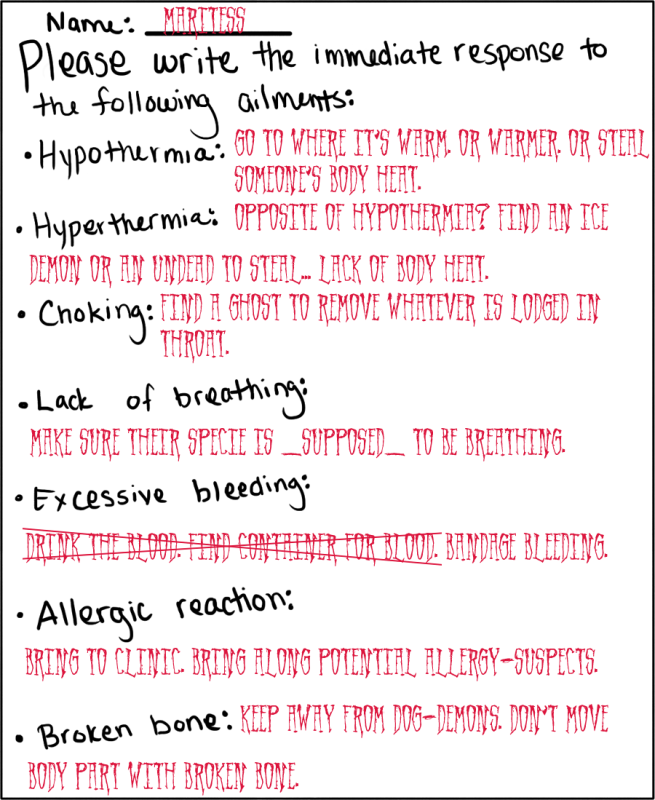 Name: MARITESS
Please write the immediate response to
the following ailments:
• Hypothermia: GO TO WHERE IT'S WARM. OR WARMER. OR STEAL
SOMEONE'S BODY HEAT.
• Hyperthermia: OPPOSITE OF HYPOTHERMIA? FIND AN ICE
DEMON OR AN UNDEAD TO STEAL... LACK OF BODY HEAT.
• Choking: FIND A GHOST TO REMOVE WHATEVER IS LODGED IN
THROAT.
• Lack of breathing:
MAKE SURE THEIR SPECIE IS _SUPPOSED_ TO BE BREATHING.
• Excessive bleeding:
DRINK THE BLOOD. FIND CONTAINER FOR BLOOD. BANDAGE BLEEDING.
• Allergic reaction:
BRING TO CLINIC. BRING ALONG POTENTIAL ALLERGY-SUSPECTS.
• Broken bone: KEEP AWAY FROM DOG-DEMONS. DON'T MOVE
BODY PART WITH BROKEN BONE.